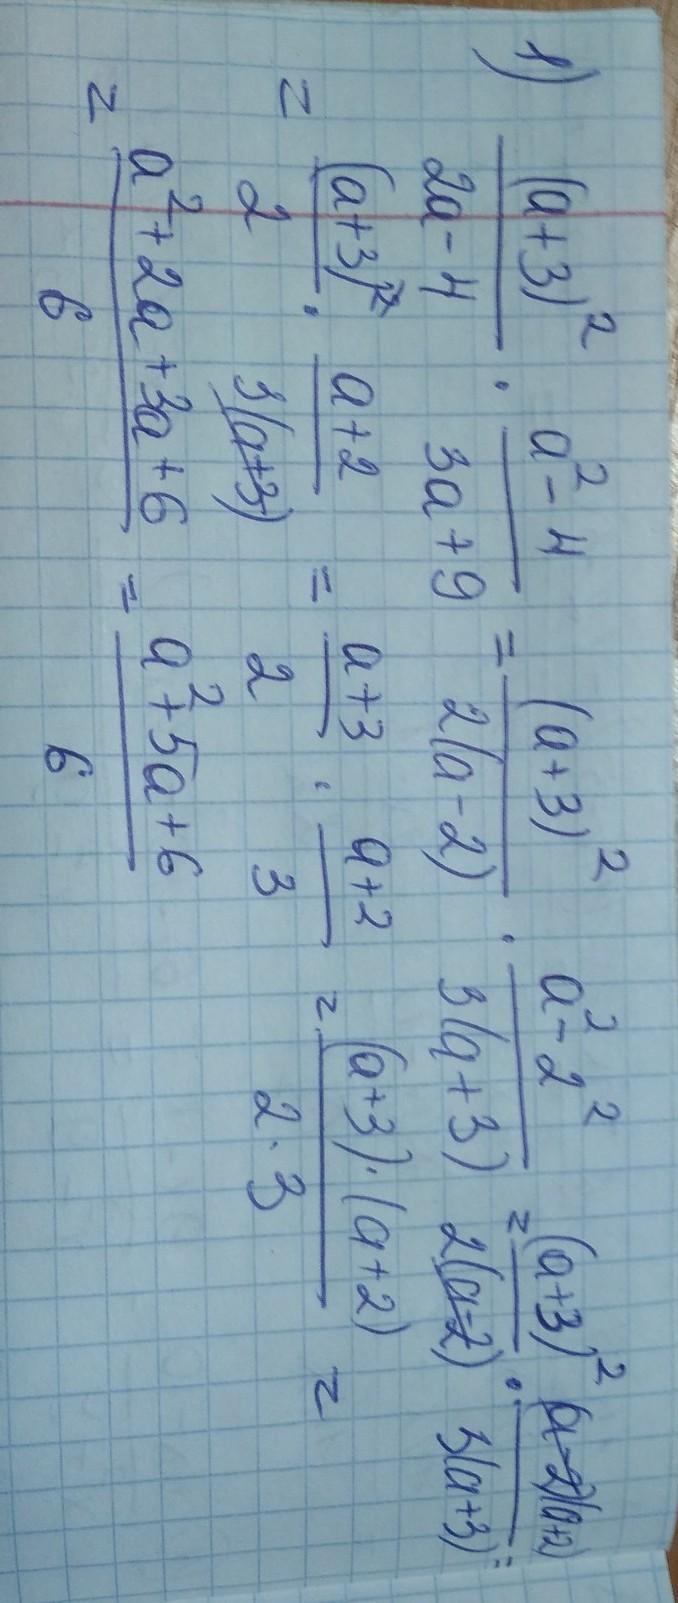 1) (a+3)²/(2a-4) · (a²-4)/(3a+9) = (a+3)²/(2(a-2)) · (a²-2²)/(3(a+3)) = (a+3)²/(2(a-2)) · (a-2)(a+2)/(3(a+3)) =
= (a+3)²/2 · (a+2)/(3(a+3)) = (a+3)/2 · (a+2)/3 = (a+3)·(a+2)/(2·3) =
= (a²+2a+3a+6)/6 = (a²+5a+6)/6